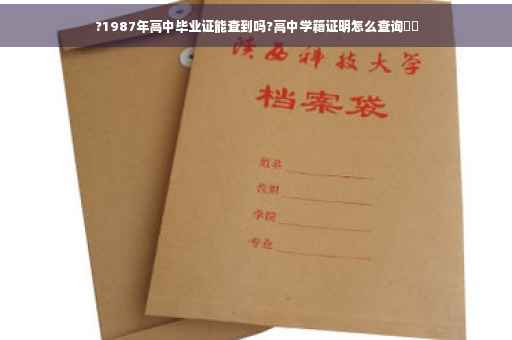 ?1987年高中毕业证能查到吗?高中学籍证明怎么查询
陕西科技大学
档案袋
姓名
学院
专业